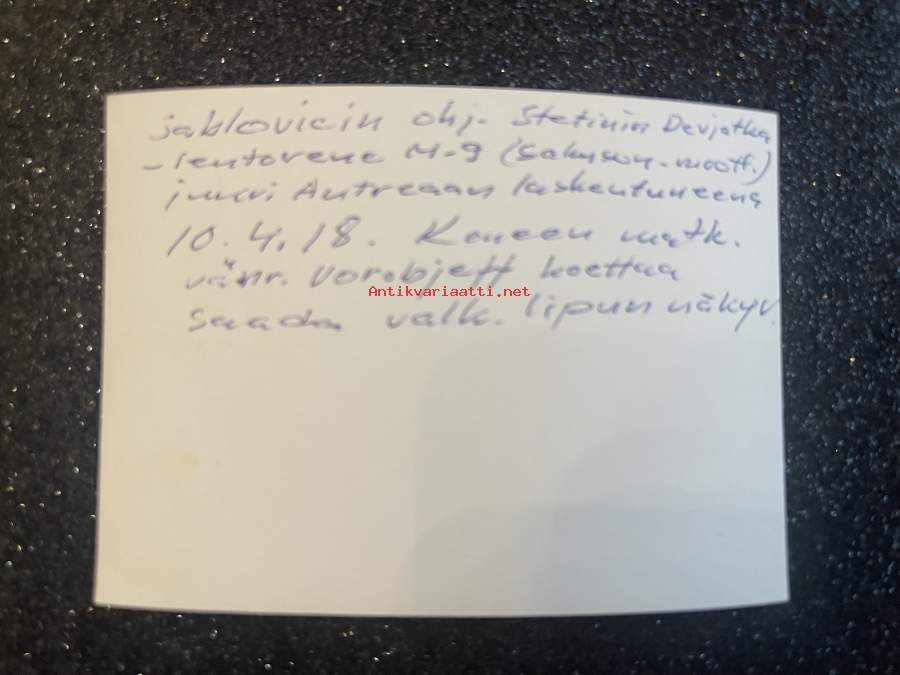 jablovicin ohj. Stetinin Devjatka
-lentovene M-9 (Salmson-moott.)
juuri Antreaan laskeutuneena
10.4.18. Koneen matk.
vänr. Vorobjeff koettaa
Antikvariaatti.net
saada valk. lipun näkyv.